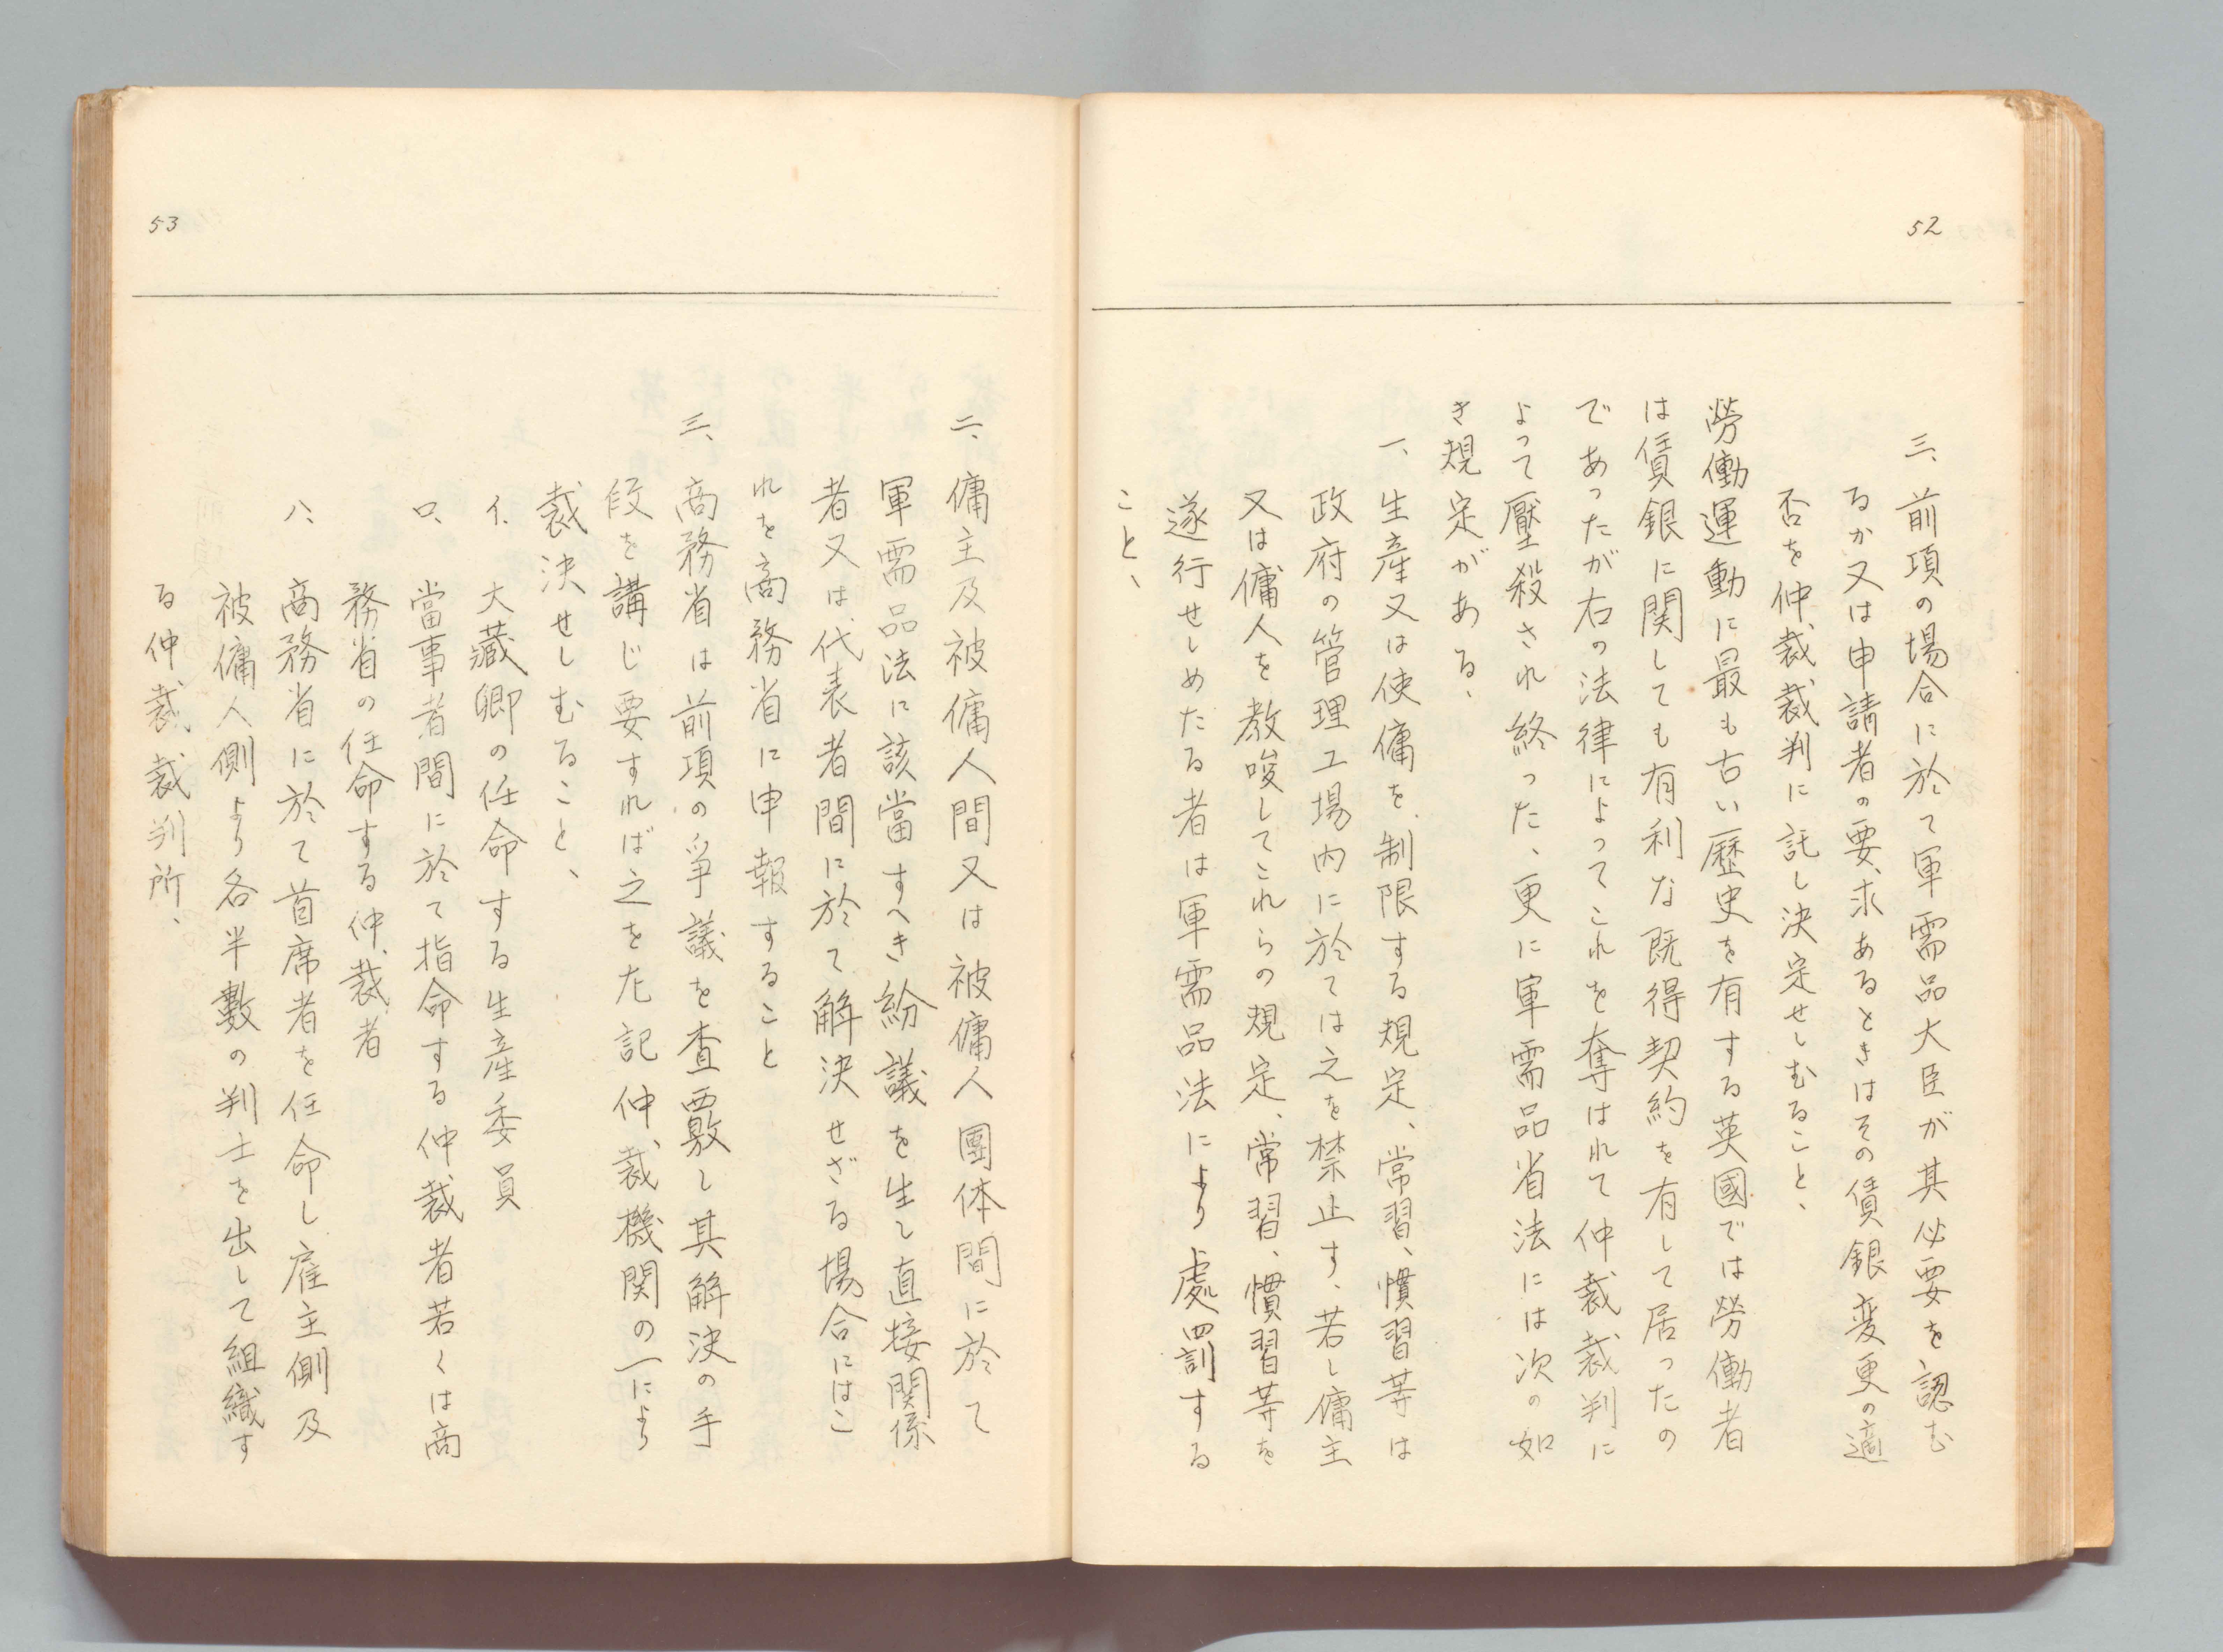 52
三、前項の場合に於て軍需品大臣が其必要を認む
るか又は申請者の要求あるときはその賃銀変更の適
否を仲裁裁判に託し決定せしむること、
勞働運動に最も古い歴史を有する英國では勞働者
は賃銀に関しても有利な既得契約を有して居ったの
であったが右の法律によってこれを奪はれて仲裁裁判に
よって壓殺され終った、更に軍需品省法には次の如
き規定がある、
一、生産又は使傭を制限する規定、常習、慣習等は
政府の管理工場内に於ては之を禁止す、若し傭主
又は傭人を教唆してこれらの規定、常習、慣習等を
遂行せしめたる者は軍需品法により處罰する
こと、
53
二、傭主及被傭人間又は被傭人團体間に於て
軍需品法に該當すへき紛議を生し直接関係
者又は代表者間に於て解決せざる場合にはこ
れを商務省に申報すること
三、商務省は前項の爭議を査覈し其解決の手
段を講じ要すれば之を左記仲裁機関の一により
裁決せしむること、
イ、大藏卿の任命する生産委員
ロ、當事者間に於て指命する仲裁者若くは商
務省の任命する仲裁者
ハ、商務省に於て首席者を任命し雇主側及
被傭人側より各半數の判士を出して組織す
る仲裁裁判所、